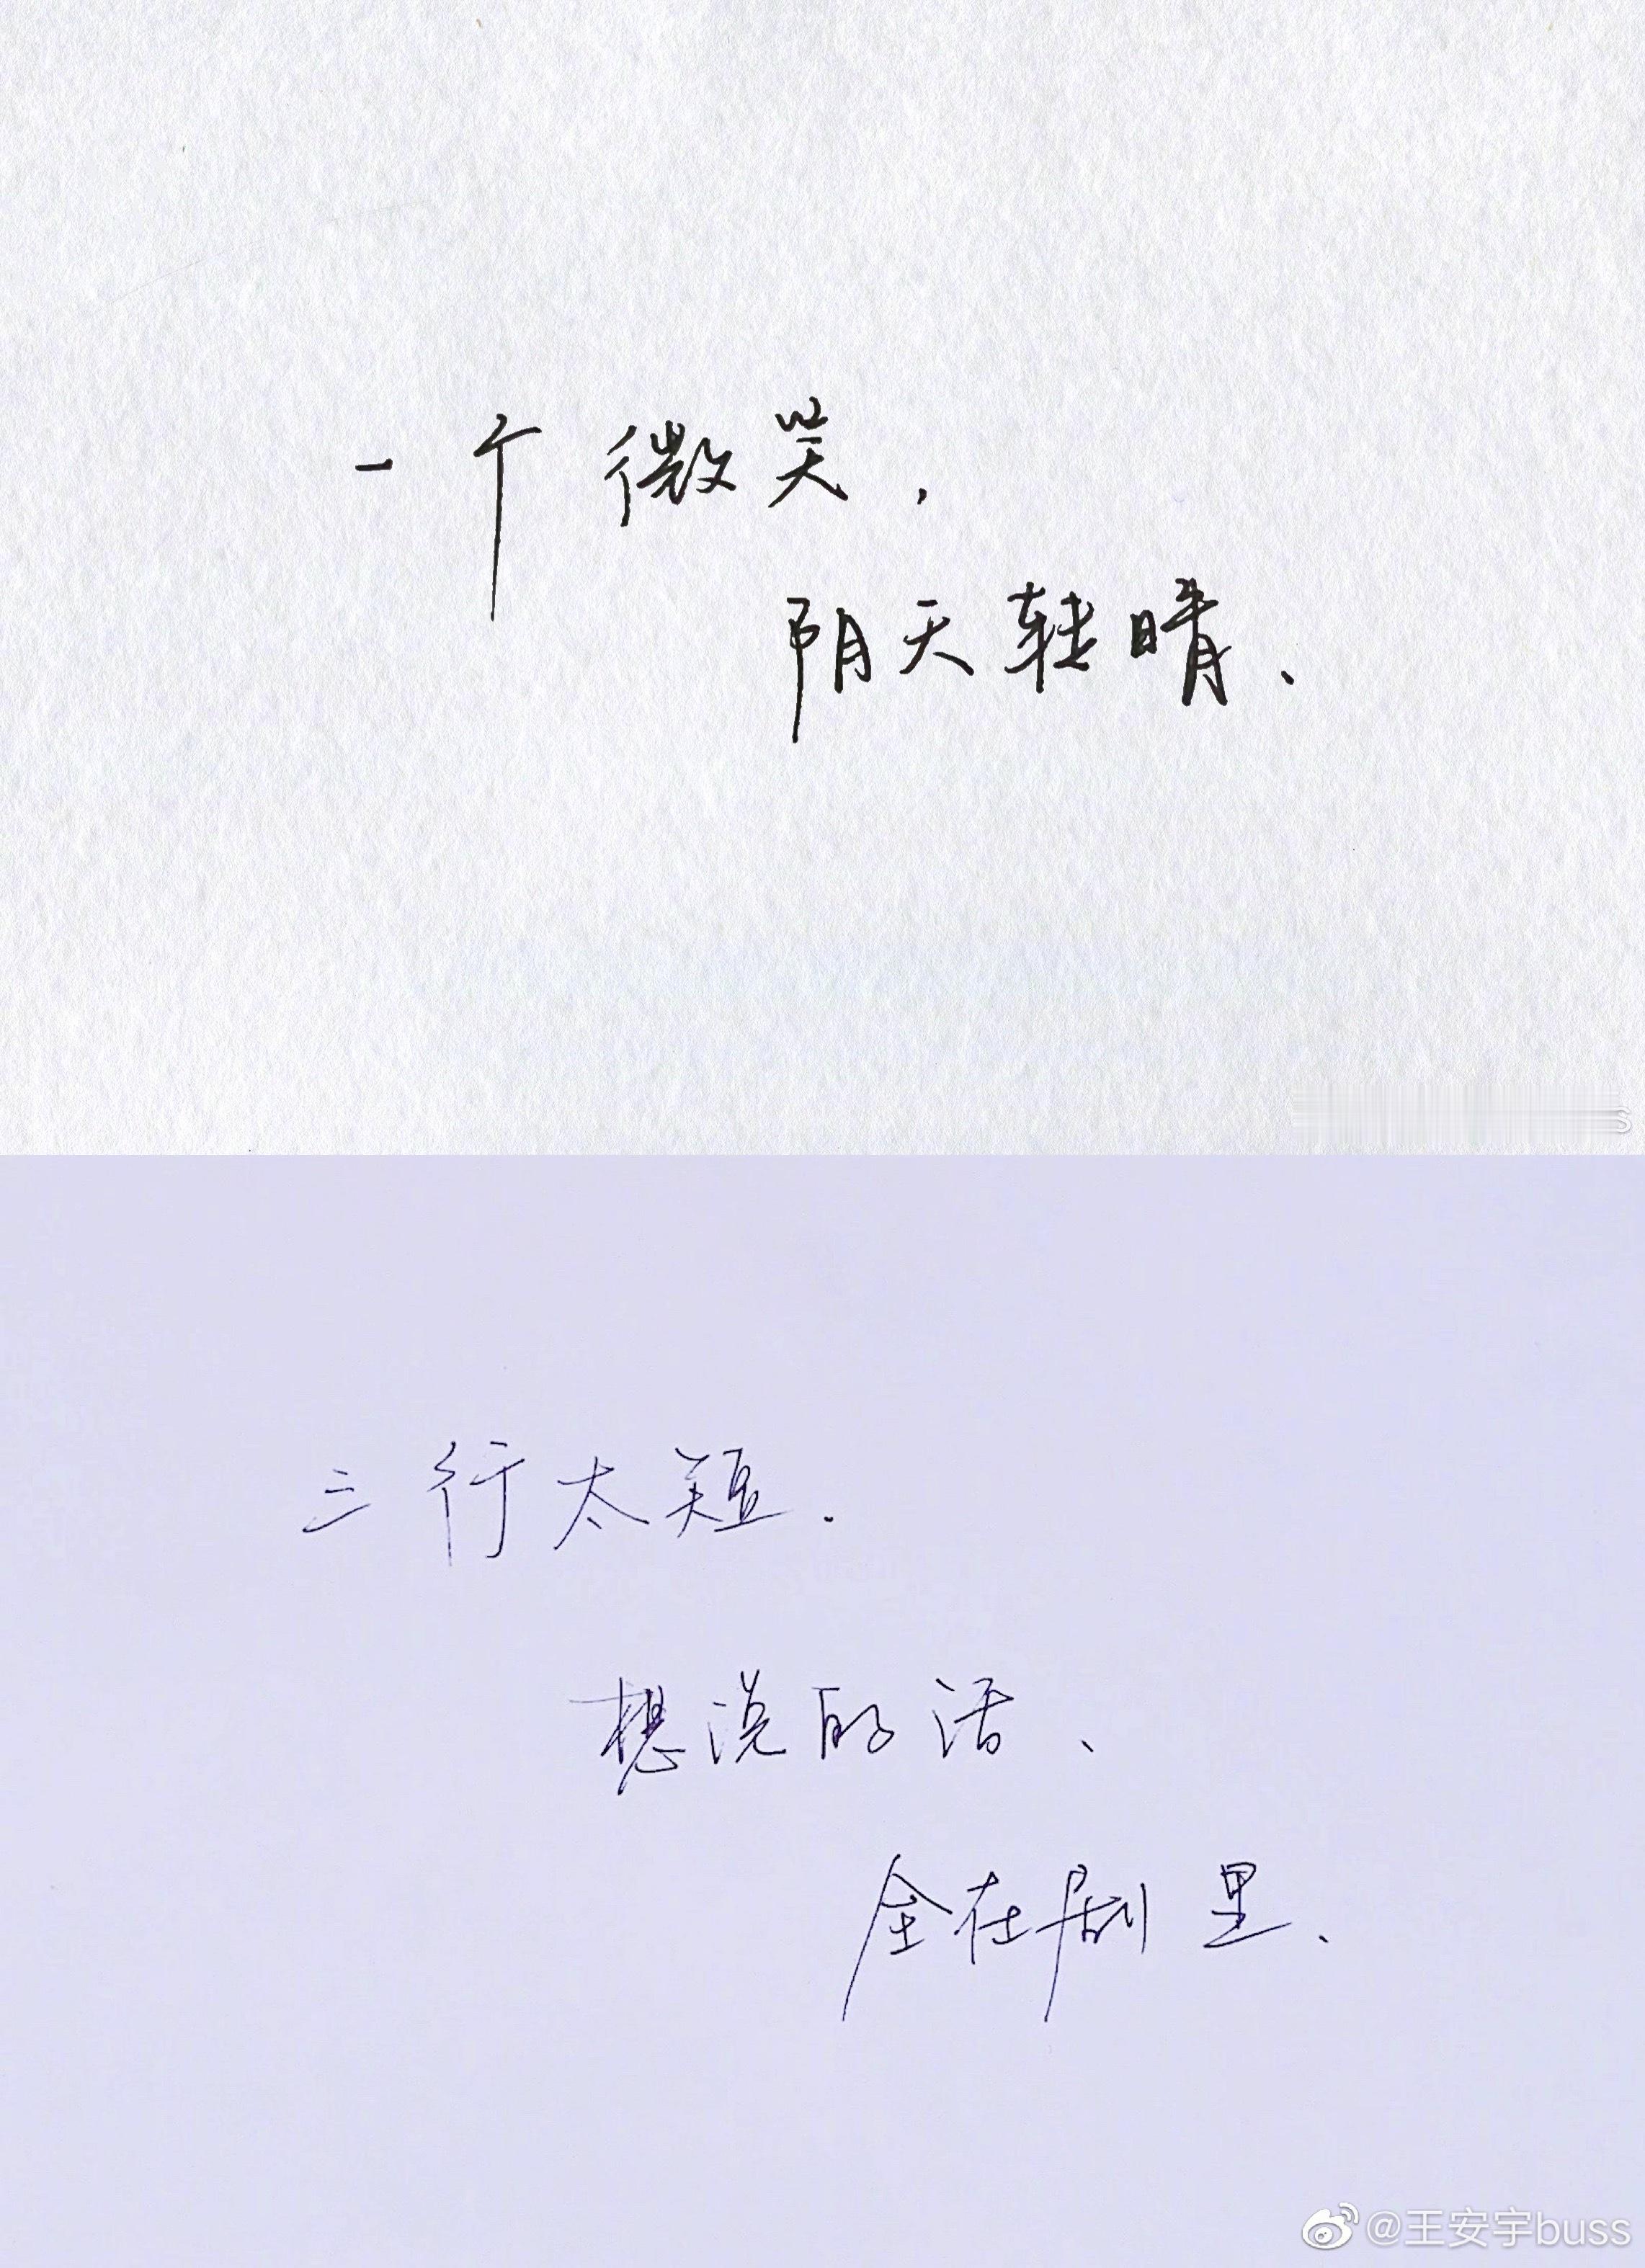 一个微笑，
阴天转晴、
S
三行太短.
想说的话、
全在剧里、
@王安宇buss